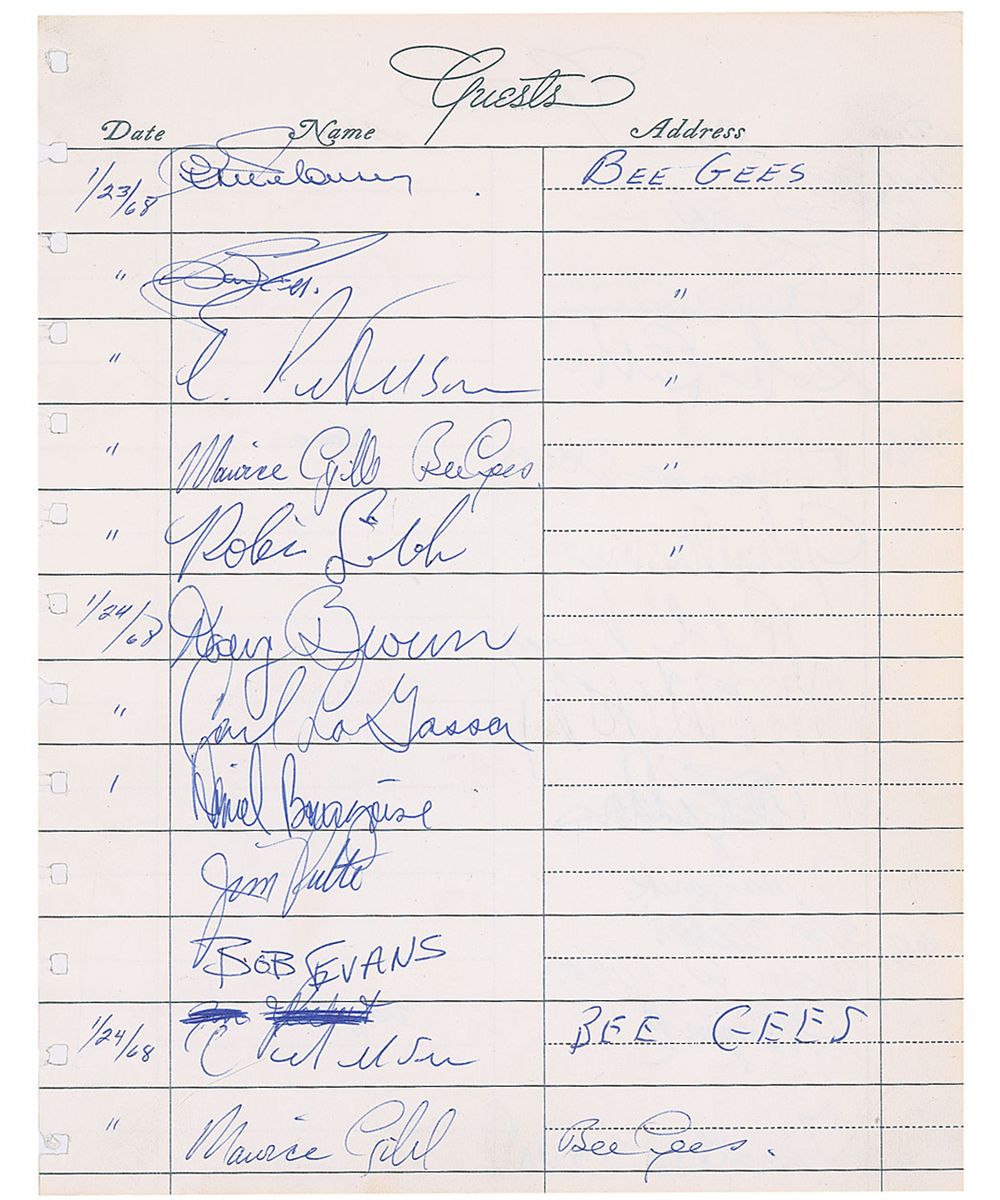 Guests
Date Name Address
1/23/68 BEE GEES
" "
" "
" Maurice Gibb BeeGees. "
" Robin Gibb "
1/24/68 Brown
" Carl LaGassa
Daniel Bourgoise
Jim
BOB EVANS
1/24/68 BEE GEES
" Maurice Gibb Bee Gees.